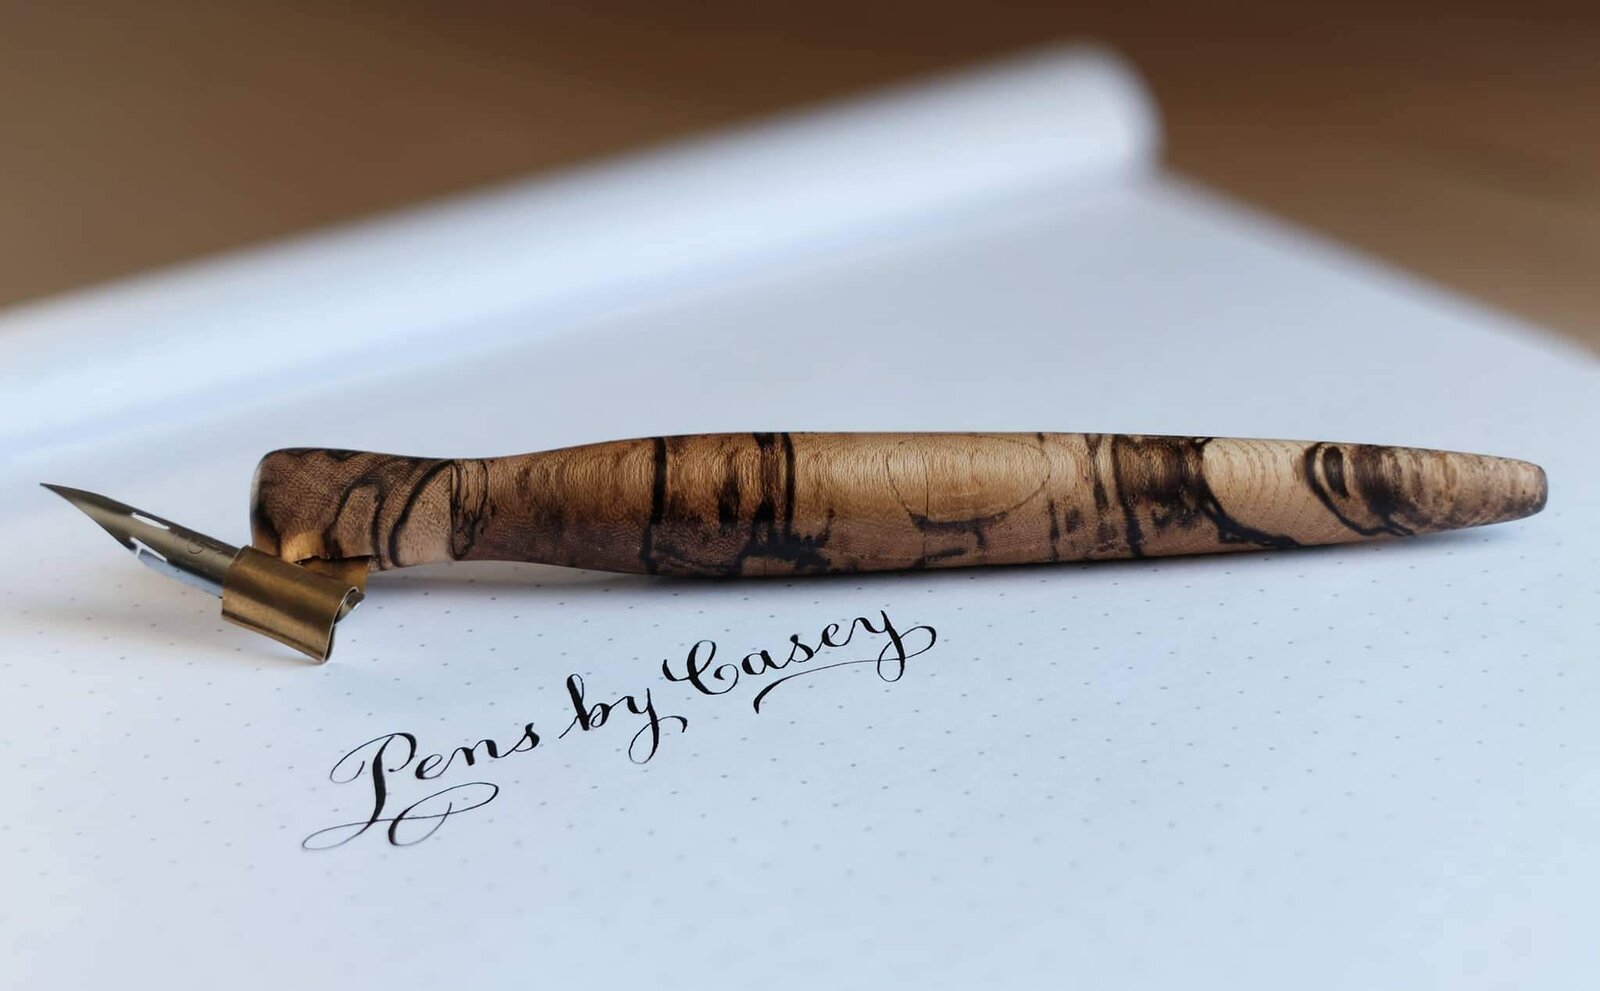 Pens by Casey